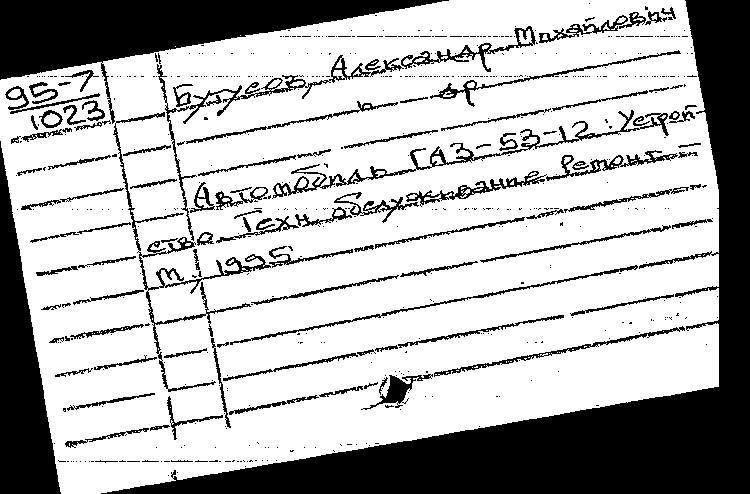 95-7
1023
Бутусов, Александр Михайлович
и др.
Автомобиль ГАЗ-53-12: Устрой-
ство. Техн. обслуживание Ремонт –
М., 1995